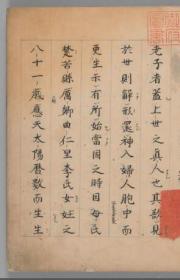 老子者蓋上世之真人也其欲見
於世則解形還神入婦人胞中而
更生示有所始當周之時因母氏
楚苦縣厲鄉曲仁里李氏女妊之
八十一歲應天太陽曆數而生生